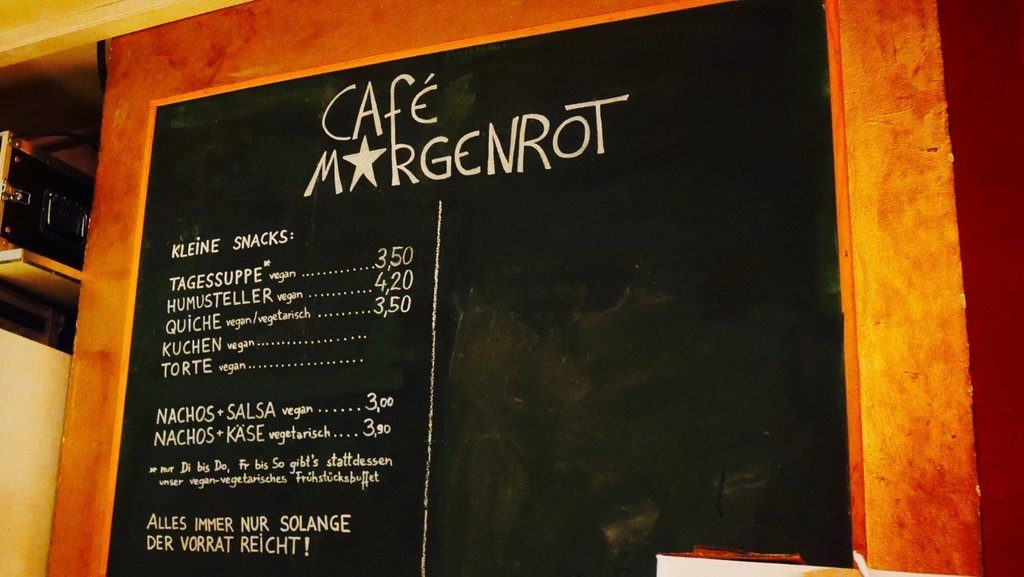 CAFÉ
M★RGENROT
KLEINE SNACKS:
TAGESSUPPE* vegan ............ 3,50
HUMUSTELLER vegan ............ 4,20
QUICHE vegan/vegetarisch ......... 3,50
KUCHEN vegan ..................
TORTE vegan ...................
NACHOS + SALSA vegan ...... 3,00
NACHOS + KÄSE vegetarisch .... 3,90
* nur Di bis Do, Fr bis So gibt's stattdessen
unser vegan-vegetarisches Frühstücksbuffet
ALLES IMMER NUR SOLANGE
DER VORRAT REICHT!